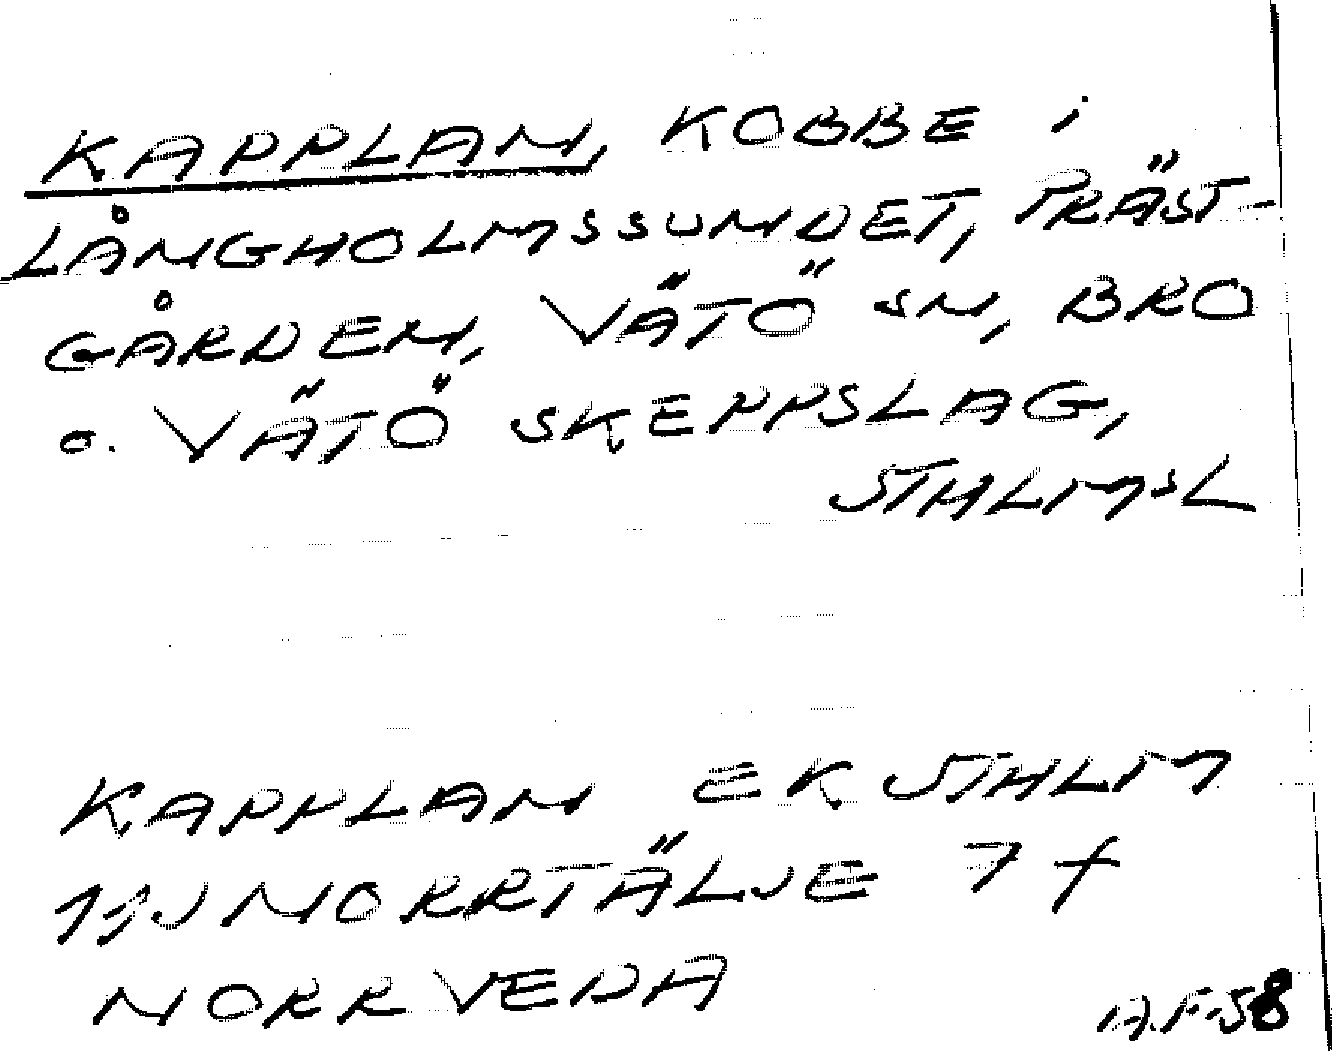 KAPPLAN, KOBBE i
LÅNGHOLMSSUNDET, PRÄST-
GÅRDEN, VÄTÖ SN, BRO
o. VÄTÖ SKEPPSLAG,
STHLMSL
KAPPLAN EK STHLM
11J NORRTÄLJE 7 f
NORRVEDA
A.F-58